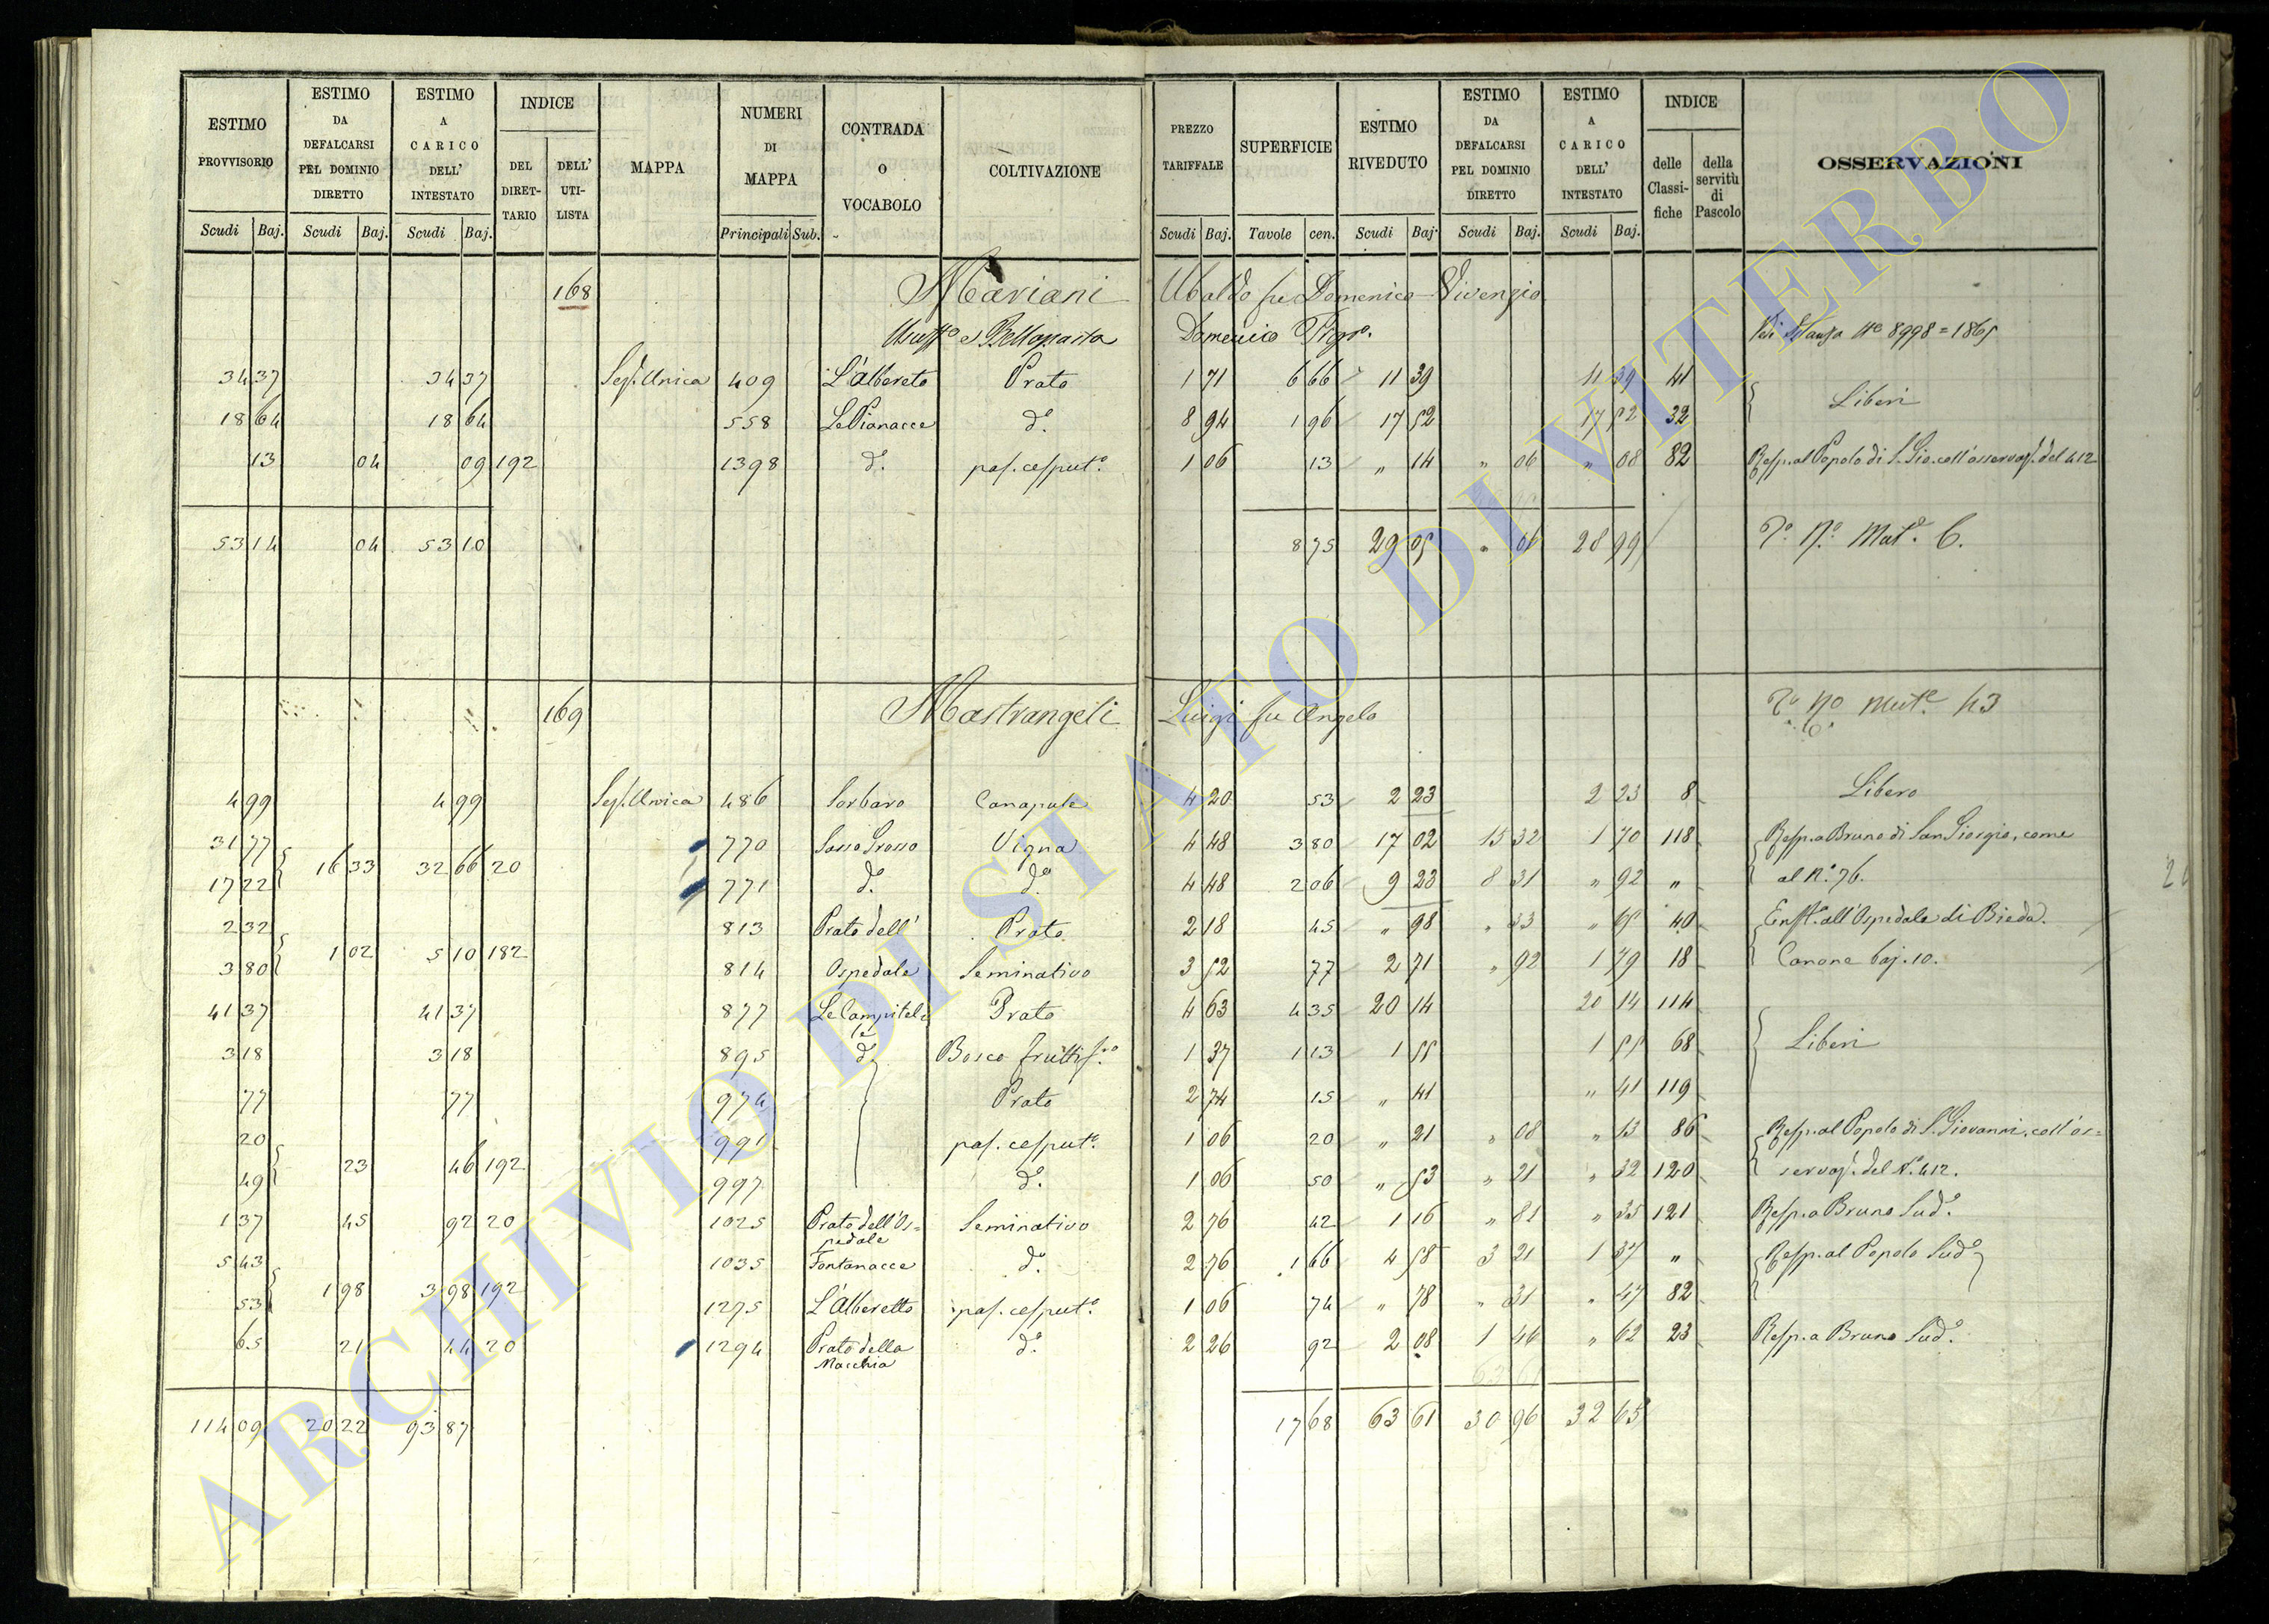 ESTIMO PROVVISORIO Scudi Baj. ESTIMO DA DEFALCARSI PEL DOMINIO DIRETTO Scudi Baj. ESTIMO A CARICO DELL' INTESTATO Scudi Baj. INDICE DEL DIRET-TARIO DELL' UTI-LISTA MAPPA NUMERI DI MAPPA Principali Sub. CONTRADA O VOCABOLO COLTIVAZIONE PREZZO TARIFFALE Scudi Baj. SUPERFICIE Tavole cen. ESTIMO RIVEDUTO Scudi Baj. ESTIMO DA DEFALCARSI PEL DOMINIO DIRETTO Scudi Baj. ESTIMO A CARICO DELL' INTESTATO Scudi Baj. INDICE delle Classi-fiche della servitù di Pascolo OSSERVAZIONI
168 Mariani Ubaldo fu Domenico Vivenzio
Domenico 8998 = 1865
34 37 34 37 Sez. Unica 409 L'Albereto Prato 1 71 6 66 11 39 11 39 41
Liberi
18 64 18 64 558 Le Pianacce d.º 8 94 1 96 17 52 17 52 32
13 04 09 192 1398 d.º pas. cesput.º 1 06 13 " 14 " 06 " 08 82 Resp. al Popolo di S. Gio. coll'osservaz. del 412
53 14 04 53 10 8 75 29 05 " 06 28 99 Mut.e 6.
169 Mastrangeli Luigi fu Angelo Mut.e 43
4 99 4 99 Sez. Unica 486 Sorbaro Canapule 4 20 53 2 23 2 23 8 Libero
31 77 770 Sasso Grosso Vigna 4 48 3 80 17 02 15 32 1 70 118 Resp. a Bruno di San Giorgio, come
16 33 32 66 20
17 22 771 d.º d.º 4 48 2 06 9 23 8 31 " 92 " al N.º 76.
2 32 813 Prato dell' Prato 2 18 45 " 98 " 33 " 65 40 Enft. all'Ospedale di Bieda.
1 02 5 10 182
3 80 814 Ospedale Seminativo 3 52 77 2 71 " 92 1 79 18 Canone baj. 10.
41 37 41 37 877 Le Campitelle Prato 4 63 4 35 20 14 20 14 114
Liberi
3 18 3 18 895 d.º Bosco fruttif.º 1 37 1 13 1 55 1 55 68
77 77 974 Prato 2 74 15 " 41 " 41 119
20 991 pas. cesput.º 1 06 20 " 21 " 08 " 13 86 Resp. al Popolo di S. Giovanni, coll'os=
23 46 192
49 997 d.º 1 06 50 " 53 " 21 " 32 120 servaz. del N.º 412.
1 37 45 92 20 1025 Prato dell'Os=pedale Seminativo 2 76 42 1 16 " 81 " 35 121 Resp. a Bruno Sud.º
5 43 1035 Fontanacce d.º 2 76 1 66 4 58 3 21 1 37 " Resp. al Popolo Sud.º
1 98 3 98 192
53 1275 L'Alberetto pas. cesput.º 1 06 74 " 78 " 31 " 47 82
65 21 44 20 1294 Prato della Macchia d.º 2 26 92 2 08 1 46 " 62 23 Resp. a Bruno Sud.º
114 09 20 22 93 87 17 68 63 61 30 96 32 65
ARCHIVIO DI STATO DI VITERBO